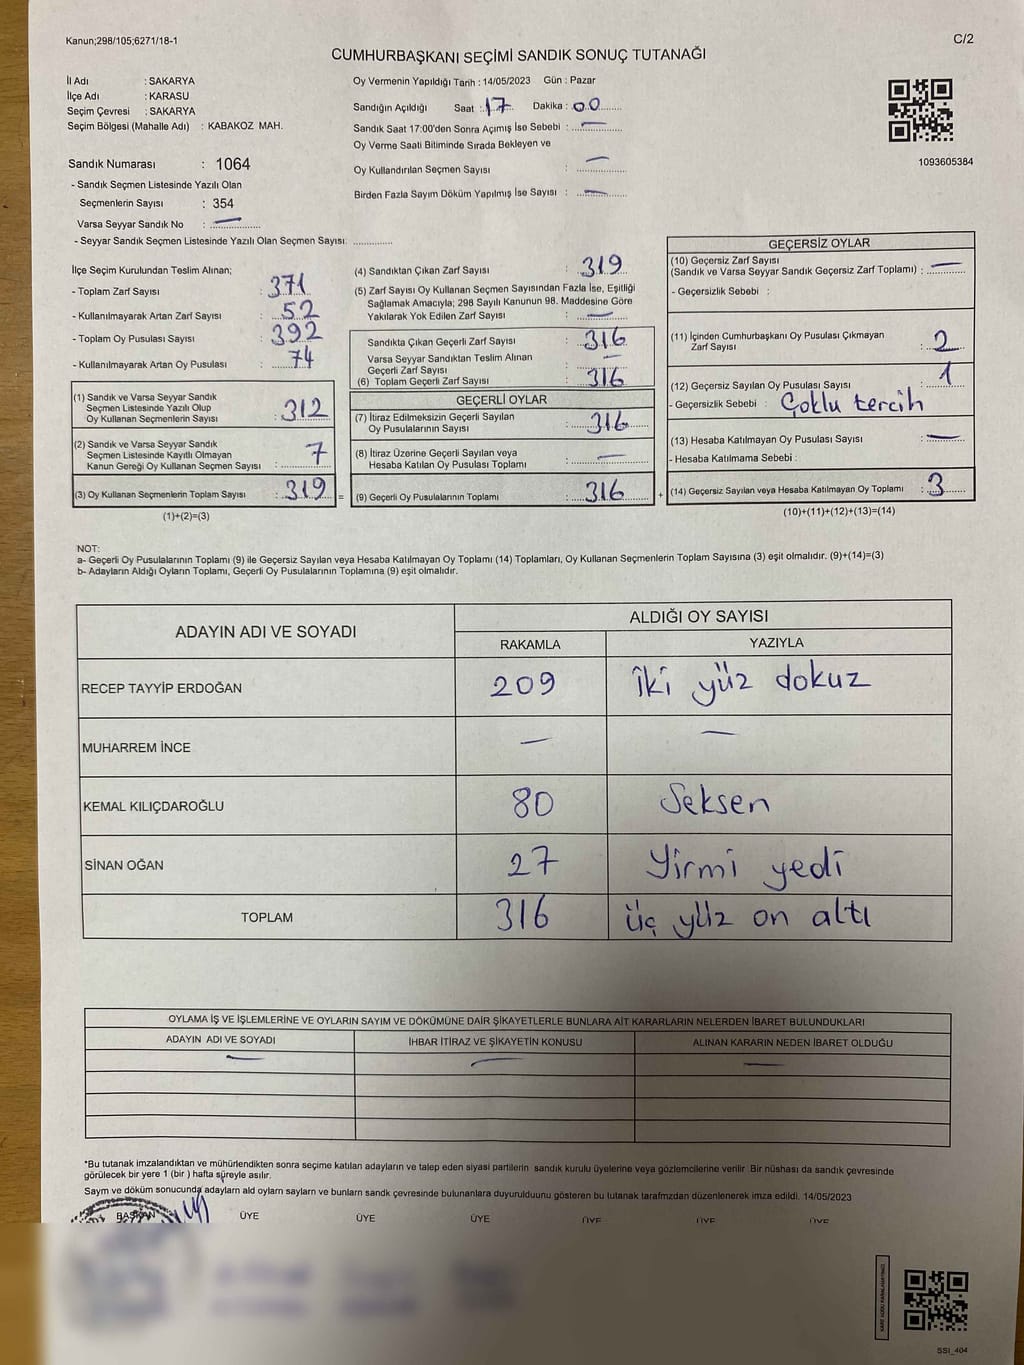 Kanun;298/105;6271/18-1
C/2
CUMHURBAŞKANI SEÇİMİ SANDIK SONUÇ TUTANAĞI
İl Adı : SAKARYA
İlçe Adı : KARASU
Seçim Çevresi : SAKARYA
Seçim Bölgesi (Mahalle Adı) : KABAKOZ MAH.
Sandık Numarası : 1064
- Sandık Seçmen Listesinde Yazılı Olan
Seçmenlerin Sayısı : 354
Varsa Seyyar Sandık No : —
- Seyyar Sandık Seçmen Listesinde Yazılı Olan Seçmen Sayısı: ............
Oy Vermenin Yapıldığı Tarih : 14/05/2023 Gün : Pazar
Sandığın Açıldığı Saat : 17 Dakika : 00
Sandık Saat 17:00'den Sonra Açımış İse Sebebi : —
Oy Verme Saati Bitiminde Sırada Bekleyen ve
Oy Kullandırılan Seçmen Sayısı : —
Birden Fazla Sayım Döküm Yapılmış İse Sayısı : —
1093605384
İlçe Seçim Kurulundan Teslim Alınan;
- Toplam Zarf Sayısı : 371
- Kullanılmayarak Artan Zarf Sayısı : 52
- Toplam Oy Pusulası Sayısı : 392
- Kullanılmayarak Artan Oy Pusulası : 74
(1) Sandık ve Varsa Seyyar Sandık
Seçmen Listesinde Yazılı Olup
Oy Kullanan Seçmenlerin Sayısı : 312
(2) Sandık ve Varsa Seyyar Sandık
Seçmen Listesinde Kayıtlı Olmayan
Kanun Gereği Oy Kullanan Seçmen Sayısı : 7
(3) Oy Kullanan Seçmenlerin Toplam Sayısı : 319 =
(1)+(2)=(3)
(4) Sandıktan Çıkan Zarf Sayısı : 319
(5) Zarf Sayısı Oy Kullanan Seçmen Sayısından Fazla İse, Eşitliği
Sağlamak Amacıyla; 298 Sayılı Kanunun 98. Maddesine Göre
Yakılarak Yok Edilen Zarf Sayısı : —
Sandıkta Çıkan Geçerli Zarf Sayısı : 316
Varsa Seyyar Sandıktan Teslim Alınan
Geçerli Zarf Sayısı : —
(6) Toplam Geçerli Zarf Sayısı : 316
GEÇERLİ OYLAR
(7) İtiraz Edilmeksizin Geçerli Sayılan
Oy Pusulalarının Sayısı : 316
(8) İtiraz Üzerine Geçerli Sayılan veya
Hesaba Katılan Oy Pusulası Toplamı : —
(9) Geçerli Oy Pusulalarının Toplamı : 316 +
GEÇERSİZ OYLAR
(10) Geçersiz Zarf Sayısı
(Sandık ve Varsa Seyyar Sandık Geçersiz Zarf Toplamı) : —
- Geçersizlik Sebebi :
(11) İçinden Cumhurbaşkanı Oy Pusulası Çıkmayan
Zarf Sayısı : 2
(12) Geçersiz Sayılan Oy Pusulası Sayısı : 1
- Geçersizlik Sebebi : Çoklu tercih
(13) Hesaba Katılmayan Oy Pusulası Sayısı : —
- Hesaba Katılmama Sebebi :
(14) Geçersiz Sayılan veya Hesaba Katılmayan Oy Toplamı : 3
(10)+(11)+(12)+(13)=(14)
NOT:
a- Geçerli Oy Pusulalarının Toplamı (9) ile Geçersiz Sayılan veya Hesaba Katılmayan Oy Toplamı (14) Toplamları, Oy Kullanan Seçmenlerin Toplam Sayısına (3) eşit olmalıdır. (9)+(14)=(3)
b- Adayların Aldığı Oyların Toplamı, Geçerli Oy Pusulalarının Toplamına (9) eşit olmalıdır.
ADAYIN ADI VE SOYADI
ALDIĞI OY SAYISI
RAKAMLA YAZIYLA
RECEP TAYYİP ERDOĞAN 209 iki yüz dokuz
MUHARREM İNCE — —
KEMAL KILIÇDAROĞLU 80 Seksen
SİNAN OĞAN 27 Yirmi yedi
TOPLAM 316 üç yüz on altı
OYLAMA İŞ VE İŞLEMLERİNE VE OYLARIN SAYIM VE DÖKÜMÜNE DAİR ŞİKAYETLERLE BUNLARA AİT KARARLARIN NELERDEN İBARET BULUNDUKLARI
ADAYIN ADI VE SOYADI İHBAR İTİRAZ VE ŞİKAYETİN KONUSU ALINAN KARARIN NEDEN İBARET OLDUĞU
— — —
*Bu tutanak imzalandıktan ve mühürlendikten sonra seçime katılan adayların ve talep eden siyasi partilerin sandık kurulu üyelerine veya gözlemcilerine verilir Bir nüshası da sandık çevresinde
görülecek bir yere 1 (bir ) hafta süreyle asılır.
Sayım ve döküm sonucunda adaylarn ald oylarn sayları ve bunların sandk çevresinde bulunanlara duyurulduunu gösteren bu tutanak tarafmzdan düzenlenerek imza edildi. 14/05/2023
BAŞKAN ÜYE ÜYE ÜYE ÜYE ÜYE ÜYE
SSI_404